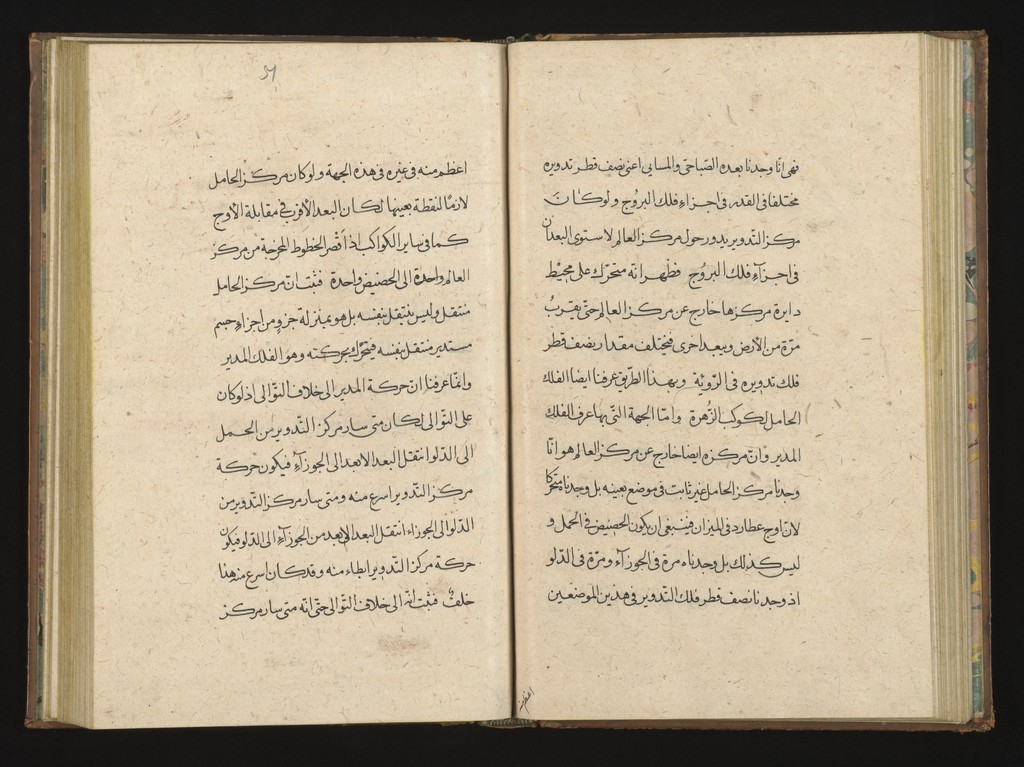 فهى انا وجدنا بعده الصباحى والمسابى اعنى نصف قطر تدويره
مختلفا فى القدر فى اجزاء فلك البروج ولو كان
مركز التدوير يدور حول مركز العالم لاستوى البعدان
فى اجزاء فلك البروج فظهر انه متحرك على محيط
دايرة مركزها خارج عن مركز العالم حتى يقرب
مرة من الارض ويبعد اخرى فيختلف مقدار نصف قطر
فلك تدويره فى الرؤية وبهذا الطريق عرفنا ايضا الفلك
الحامل لكوكب الزهرة واما الجهة التى بها عرف الفلك
المدير وان مركزه ايضا خارج عن مركز العالم هو انا
وجدنا مركز الحامل غير ثابت فى موضع بعينه بل وجدناه متحركا
لان اوج عطارد فى الميزان فينبغى ان يكون الحضيض فى الحمل و
ليس كذلك بل وجدناه مرة فى الجوزآء ومرة فى الدلو
اذ وجدنا نصف قطر فلك التدوير فى هذين الموضعين
اعظم منه
اعظم منه فى غيره فى هذه الجهة ولو كان مركز الحامل
لازما لنقطة بعينها لكان البعد الاقرب فى مقابلة الاوج
كما فى ساير الكواكب اذ اقصر الخطوط المخرجة من مركز
العالم واحدة الى الحضيض واحدة فثبت ان مركز الحامل
منتقل وليس ينتقل بنفسه بل هو بمنزلة جزو من اجزاء جسم
مستدير منتقل بنفسه فيتحرك بحركته وهو الفلك المدير
وانما عرفنا ان حركة المدير الى خلاف التوالى اذ لو كان
على التوالى لكان متى سار مركز التدوير من الحمل
الى الدلو انتقل البعد الابعد الى الجوزآء فيكون حركة
مركز التدوير اسرع منه ومتى سار مركز التدوير من
الدلو الى الجوزاء انتقل البعد الابعد من الجوزآء الى الدلو فيكون
حركة مركز التدوير ابطاء منه وقد كان اسرع منه هذا
خلف فثبت انه الى خلاف التوالى حتى انه متى سار مركز